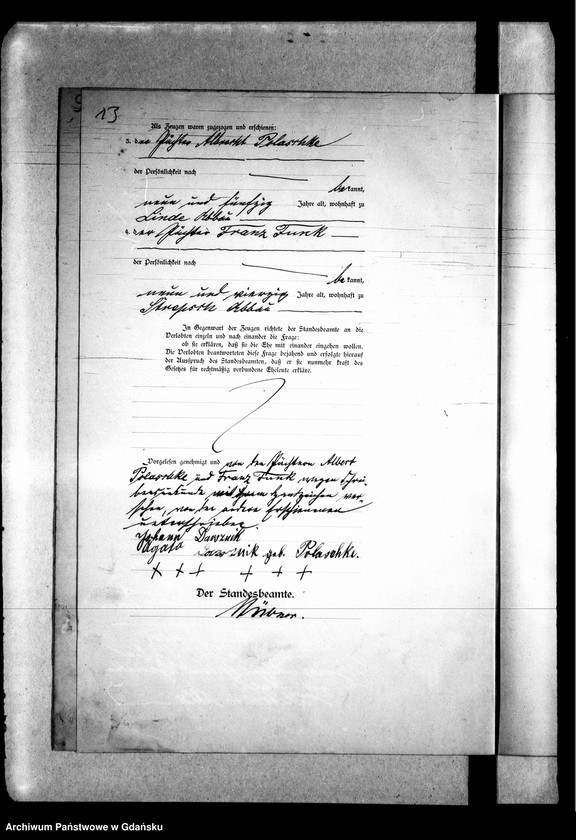 13
Als Zeugen waren zugezogen und erschienen:
3. der Pächter Albrecht Polaschke
der Persönlichkeit nach
bekannt,
neun und fünfzig Jahre alt, wohnhaft zu
Linde Abbau
4. der Pächter Franz Funk
der Persönlichkeit nach
bekannt,
neun und vierzig Jahre alt, wohnhaft zu
Strepsch Abbau
In Gegenwart der Zeugen richtete der Standesbeamte an die
Verlobten einzeln und nach einander die Frage:
ob sie erklären, daß sie die Ehe mit einander eingehen wollen.
Die Verlobten beantworteten diese Frage bejahend und erfolgte hierauf
der Ausspruch des Standesbeamten, daß er sie nunmehr kraft des
Gesetzes für rechtmäßig verbundene Eheleute erkläre.
Vorgelesen genehmigt und von den Pächtern Albert
Polaschke und Franz Funk wegen Schrei-
bensunkunde mit ihrem Handzeichen ver-
sehen, von den andern Erschienenen
unterschrieben.
Johann Dawznik
Agata Dawznik geb. Polaschke.
+ + + + + +
Der Standesbeamte.
Hübner.
Archiwum Państwowe w Gdańsku